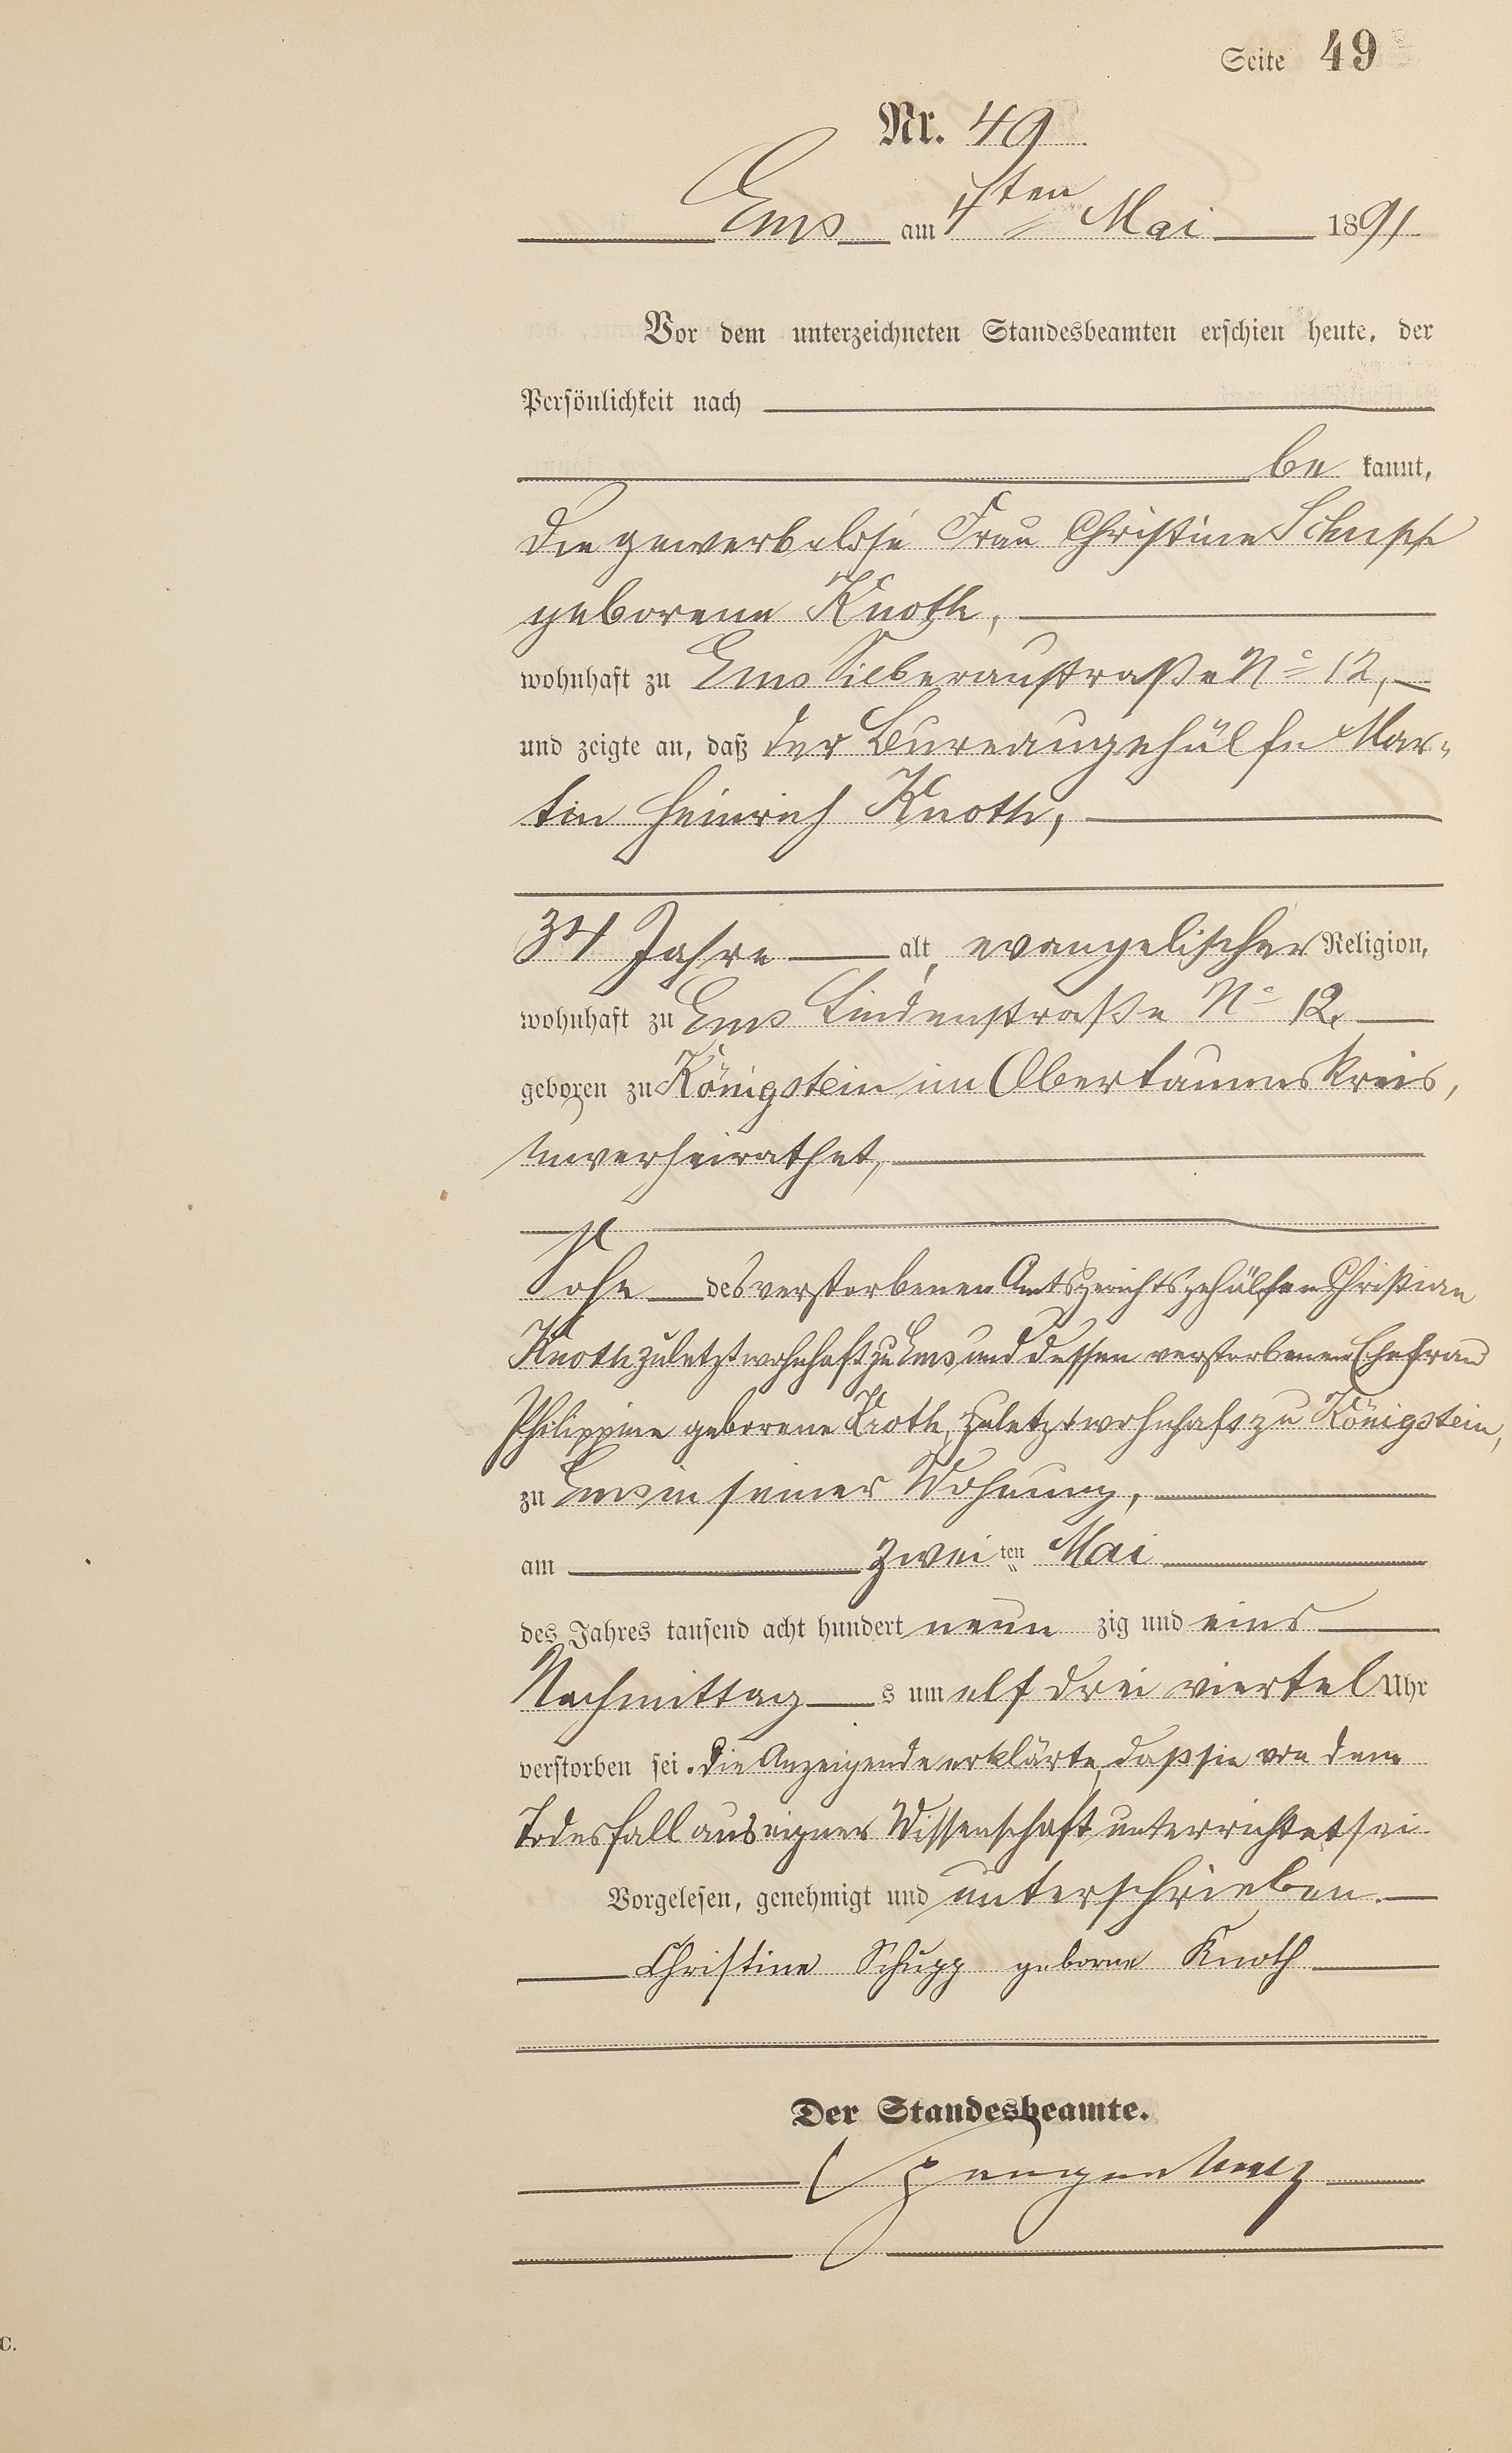 Seite 49
Nr. 49
Ems am 4ten Mai 1891
Vor dem unterzeichneten Standesbeamten erschien heute, der
Persönlichkeit nach
be kannt,
die gewerbelose Frau Christine Schupp
geborene Knoth,
wohnhaft zu Ems Silberaustraße No 12,
und zeigte an, daß der Bureaugehülfe Mar-
tin Heinrich Knoth,
34 Jahre alt, evangelischer Religion,
wohnhaft zu Ems Lindenstraße No 12,
geboren zu Königstein im Obertaunuskreis,
unverheirathet,
Sohn des verstorbenen Amtsgerichtsgehülfen Christian
Knoth zuletzt wohnhaft zu Ems und dessen verstorbenen Ehefrau
Philippine geborene zuletzt wohnhaft zu Königstein,
zu Ems in seiner Wohnung,
am zwei ten Mai
des Jahres tausend acht hundert neun zig und eins
Nachmittag s um elf drei viertel Uhr
verstorben sei. Die Anzeigende erklärte, daß sie von dem
Todesfall aus eigner Wissenschaft unterrichtet sei.
Vorgelesen, genehmigt und unterschrieben.
Christine Schupp geborne Knoth
Der Standesbeamte.
C.